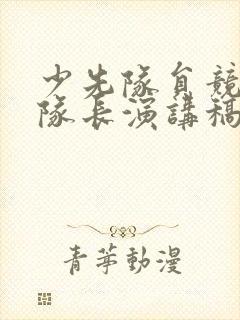 少先隊員競
隊長演講稿
青苹動漫